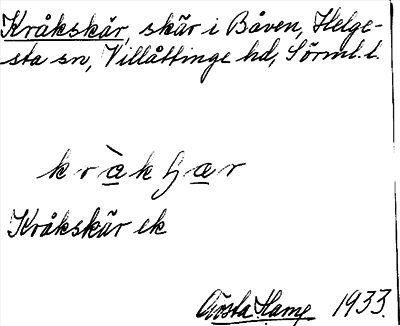 Kråkskär, skär i Båven, Helge-
sta sn, Villåttinge hd, Sörml. l.
kråkʃær
Kråkskär ek
Gösta Hamp 1933.